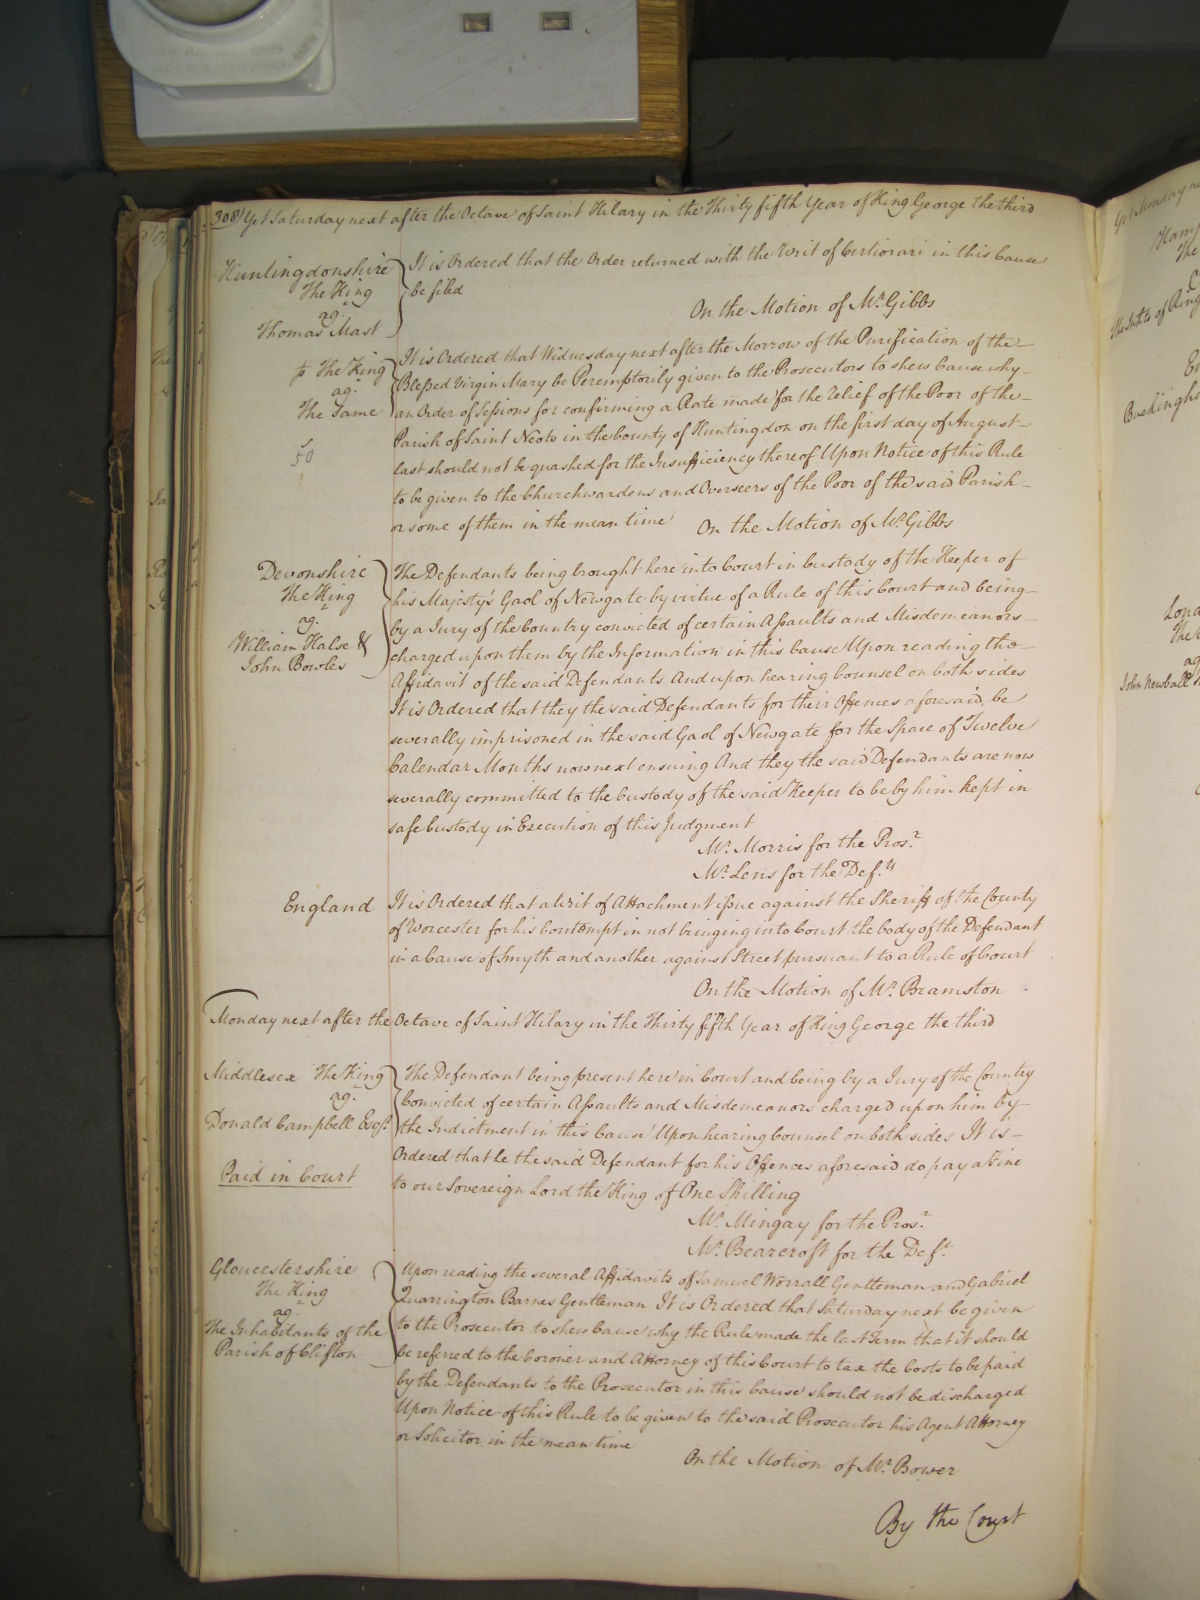 308 Yet Saturday next after the Octave of Saint Hilary in the Thirty fifth Year of King George the third
Huntingdonshire
The King
ag.
Thomas Mast
It is Ordered that the Order returned with the Writ of Certiorari in this Cause
be filed
On the Motion of Mr. Gibbs
The King
ag.
The Same
50
It is Ordered that Wednesday next after the Morrow of the Purification of the
Blessed Virgin Mary be Peremptorily given to the Prosecutors to shew Cause why
an Order of Sessions for confirming a Rate made for the relief of the Poor of the
Parish of Saint Neots in the County of Huntingdon on the first day of August
last should not be quashed for the Insufficiency thereof Upon Notice of this Rule
to be given to the Churchwardens and Overseers of the Poor of the said Parish
or some of them in the mean time
On the Motion of Mr. Gibbs
Devonshire
The King
ag.
William Halse &
John Bowles
The Defendants being brought here into Court in Custody of the Keeper of
his Majesty's Gaol of Newgate by virtue of a Rule of this Court and being
by a Jury of the Country convicted of certain Assaults and Misdemeanors
charged upon them by the Information in this Cause Upon reading the
Affidavit of the said Defendants And upon hearing Counsel on both sides
It is Ordered that they the said Defendants for their Offences aforesaid be
severally imprisoned in the said Gaol of Newgate for the Space of Twelve
Calendar Months now next ensuing And they the said Defendants are now
severally committed to the Custody of the said Keeper to be by him kept in
safe Custody in Execution of this Judgment
Mr. Morris for the Pros.r
Mr. Lens for the Def.ts
England
It is Ordered that a Writ of Attachment issue against the Sheriff of the County
of Worcester for his Contempt in not bringing into Court the body of the Defendant
in a Cause of Smyth and another against Street pursuant to a Rule of Court
On the Motion of Mr. Bramston
Monday next after the Octave of Saint Hilary in the Thirty fifth Year of King George the third
Middlesex The King
ag.
Donald Campbell Esqr.
Paid in Court
The Defendant being present here in Court and being by a Jury of the Country
Convicted of certain Assaults and Misdemeanors charged upon him by
the Indictment in this Cause Upon hearing Counsel on both sides It is
Ordered that he the said Defendant for his Offences aforesaid do pay a Fine
to our Sovereign Lord the King of One Shilling
Mr. Mingay for the Pros.r
Mr. Bearcroft for the Def.t
Gloucestershire
The King
ag.
The Inhabitants of the
Parish of Clifton
Upon reading the several Affidavits of Samuel Worrall Gentleman and Gabriel
Quarrington Barnes Gentleman It is Ordered that Saturday next be given
to the Prosecutor to shew Cause why the Rule made the last Term that it should
be referred to the Coroner and Attorney of this Court to tax the Costs to be paid
by the Defendants to the Prosecutor in this Cause should not be discharged
Upon Notice of this Rule to be given to the said Prosecutor his Agent Attorney
or Solicitor in the mean time
On the Motion of Mr. Bower
By the Court